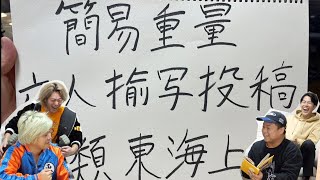 簡易重量
人揄写投稿
類東海上